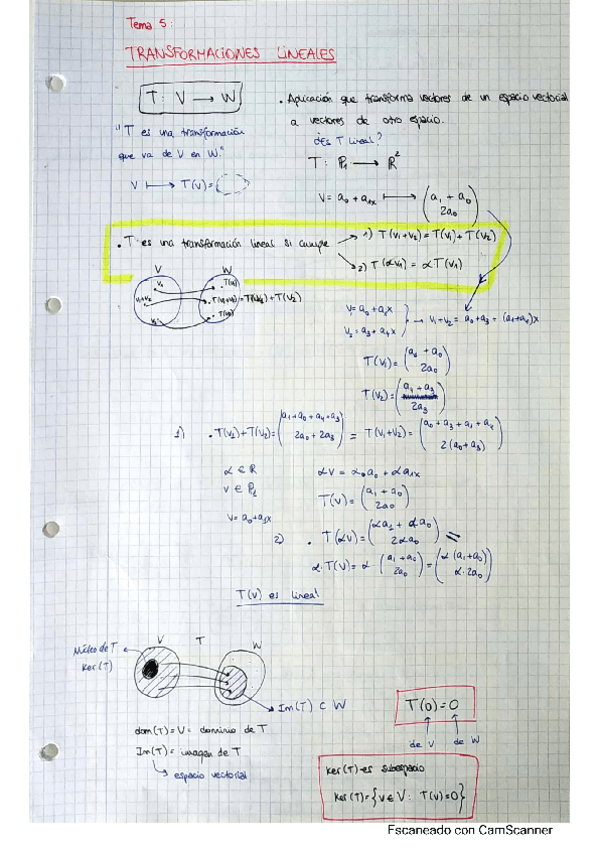 Tema 5:
TRANSFORMACIONES LINEALES
T: V → W
• Aplicación que transforma vectores de un espacio vectorial
a vectores de otro espacio.
"T es una transformación
que va de V en W."
¿Es T lineal?
T: P₁ → R²
V ↦ T(V) =
V = a₀ + a₁x ↦ (a₁ + a₀
2a₀)
• T es una transformación lineal si cumple
1) T(V₁+V₂) = T(V₁) + T(V₂)
2) T(αV₁) = αT(V₁)
V W
V₁ T(V₁)
V₁+V₂ T(V₁+V₂) = T(V₁) + T(V₂)
V₂ T(V₂)
V₁ = a₀ + a₁x
V₂ = a₃ + a₄x
→ V₁+V₂ = a₀+a₃ + (a₁+a₄)x
T(V₁) = (a₁ + a₀
2a₀)
T(V₂) = (a₄ + a₃
2a₃)
1) • T(V₁)+T(V₂) = (a₁+a₀+a₄+a₃
2a₀+2a₃) = T(V₁+V₂) = (a₀+a₃+a₁+a₄
2(a₀+a₃))
α ∈ R
αV = αa₀ + αa₁x
V ∈ P₁
T(V) = (a₁ + a₀
2a₀)
V = a₀+a₁x
2) • T(αV) = (αa₁ + αa₀
2αa₀) =
α·T(V) = α (a₁+a₀
2a₀) = (α(a₁+a₀)
α·2a₀)
T(V) es lineal
Núcleo de T
Ker(T)
V T W
Im(T) ⊂ W
T(0) = 0
de V de W
dom(T) = V = dominio de T
Im(T) = imagen de T
↳ espacio vectorial
Ker(T) es subespacio
Ker(T) = {V ∈ V: T(V)=0}
Escaneado con CamScanner